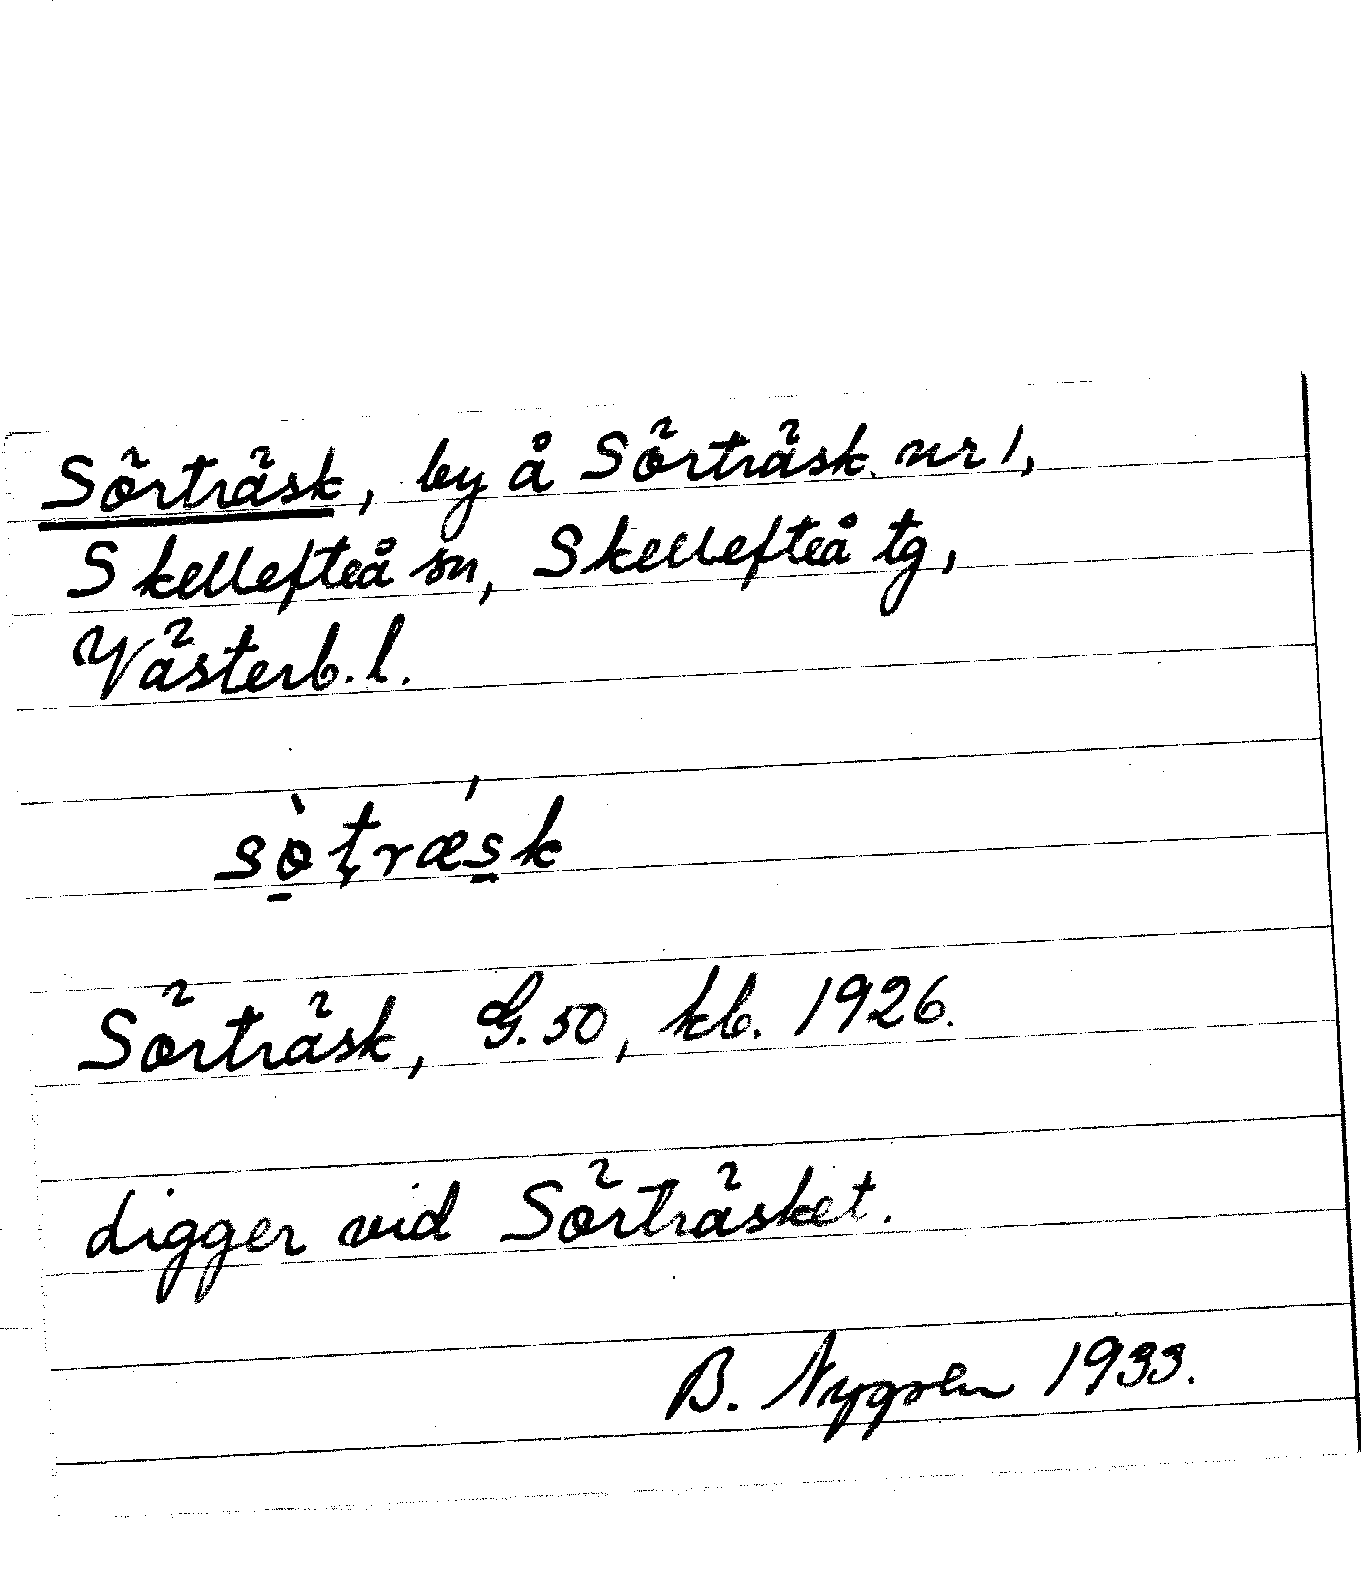 Sörträsk, by å Sörträsk nr 1,
Skellefteå sn, Skellefteå tg,
Västerb. l.
sò̱ṭrǽs̱k
Sörträsk, G. 50, kb. 1926.
Ligger vid Sörträsket.
B. Nygren 1933.